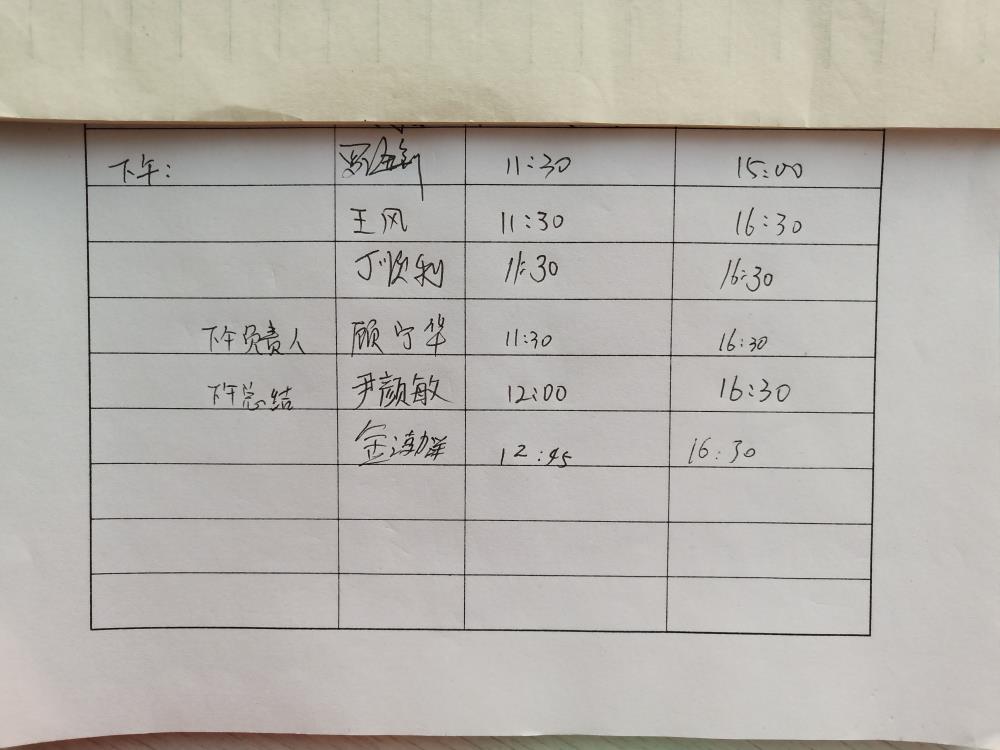 下午： 11:30 15:00
王风 11:30 16:30
丁顺利 11:30 16:30
下午负责人 顾宁华 11:30 16:30
下午总结 尹颜敏 12:00 16:30
金 12:45 16:30